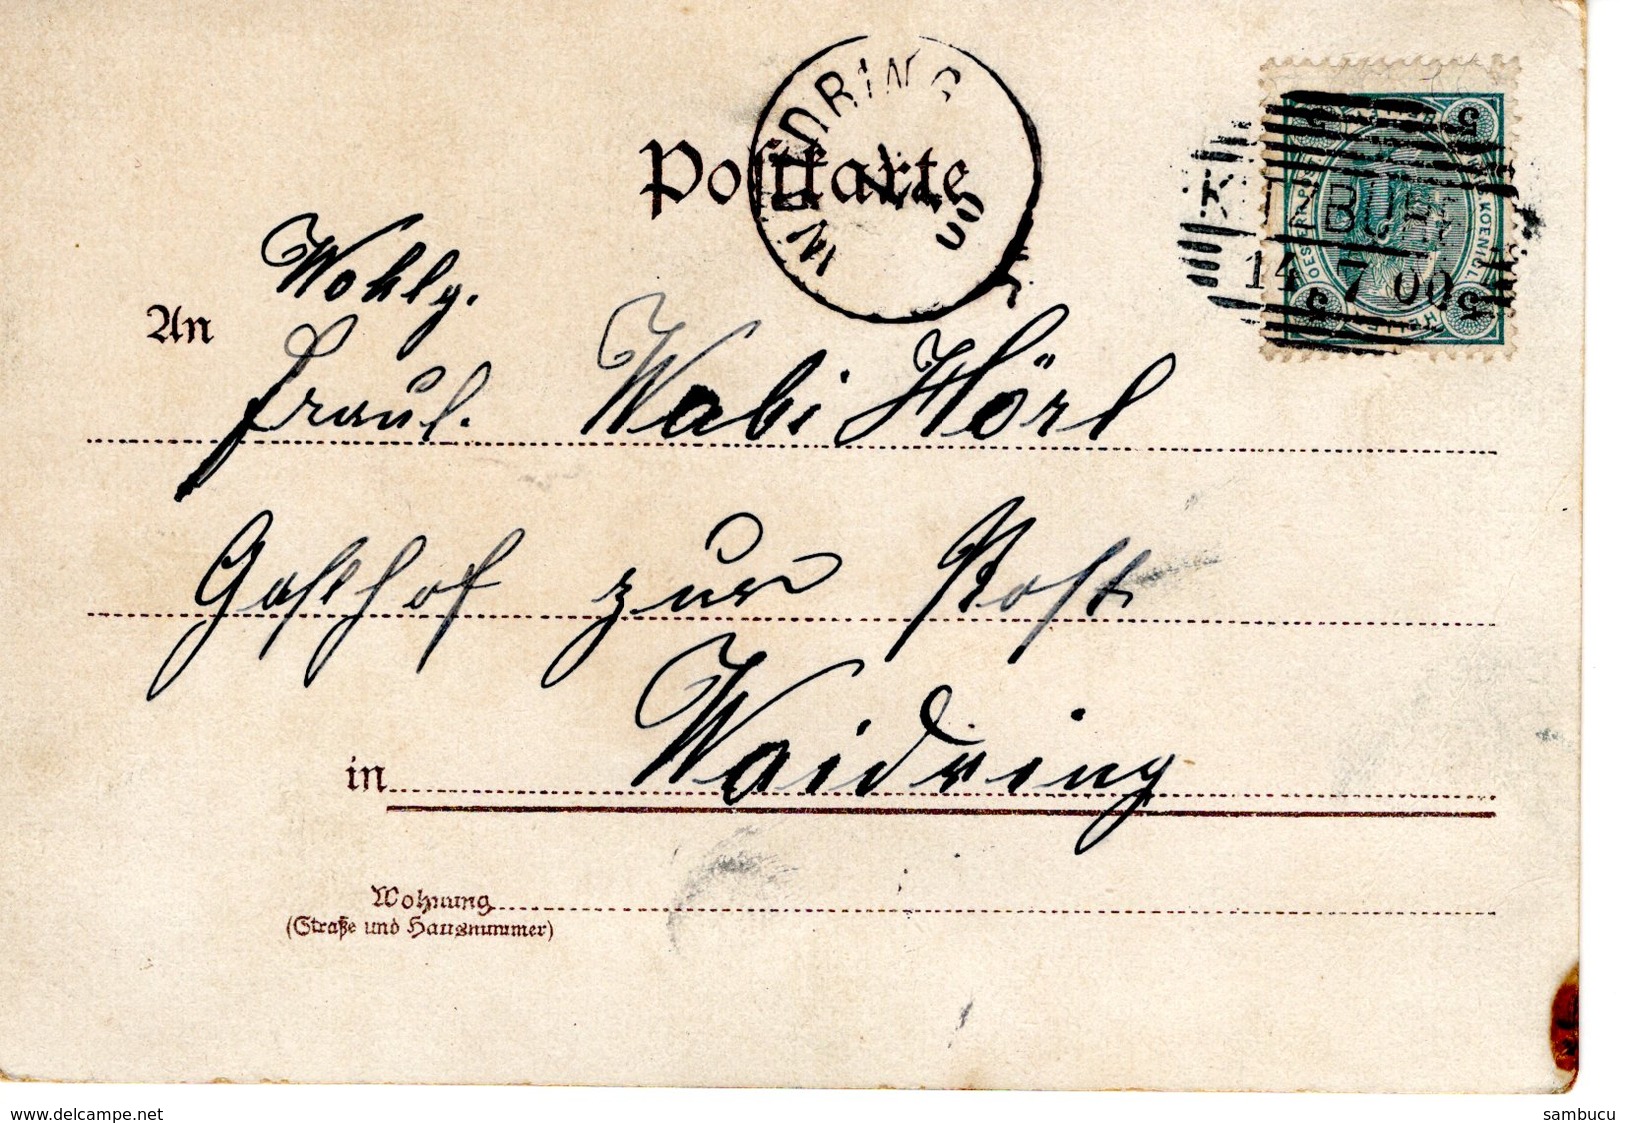 Postkarte
WAIDRING
00
5 5
KITZBÜH
14 7 00
5 5
An
Wohlg.
Fraul. Wabi Hörl
Gasthof zur Post
in Waidring
Wohnung
(Straße und Hausnummer)
www.delcampe.net
sambucu